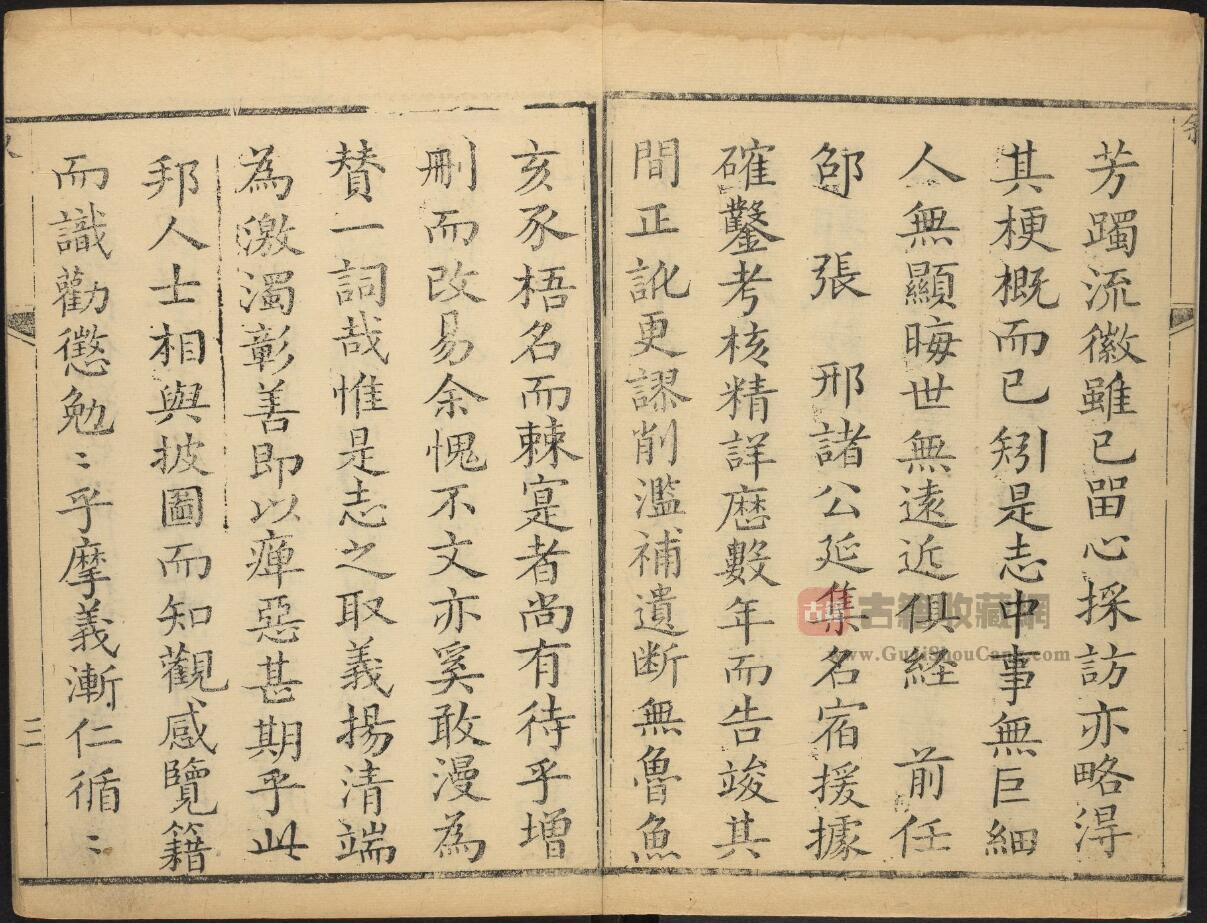 芳躅流徽雖已畱心採訪亦略淂
其梗概而已矧是志中事無巨細
人無顯晦世無遠近俱経　前任
邵　張　邢諸公延集名宿援據
確鑿考核精詳歴數年而告竣其
間正訛更謬削濫補遺断無魯魚
亥豕梧名而棘寔者尚有待乎增
刪而改易余愧不文亦奚敢漫為
賛一詞哉惟是志之取義揚清端
為激濁彰善即以癉惡甚期乎此
邦人士相與披圖而知觀感覽籍
而識勸懲勉〻乎摩義漸仁循〻
二
古籍收藏網
www.GujiShouCang.com